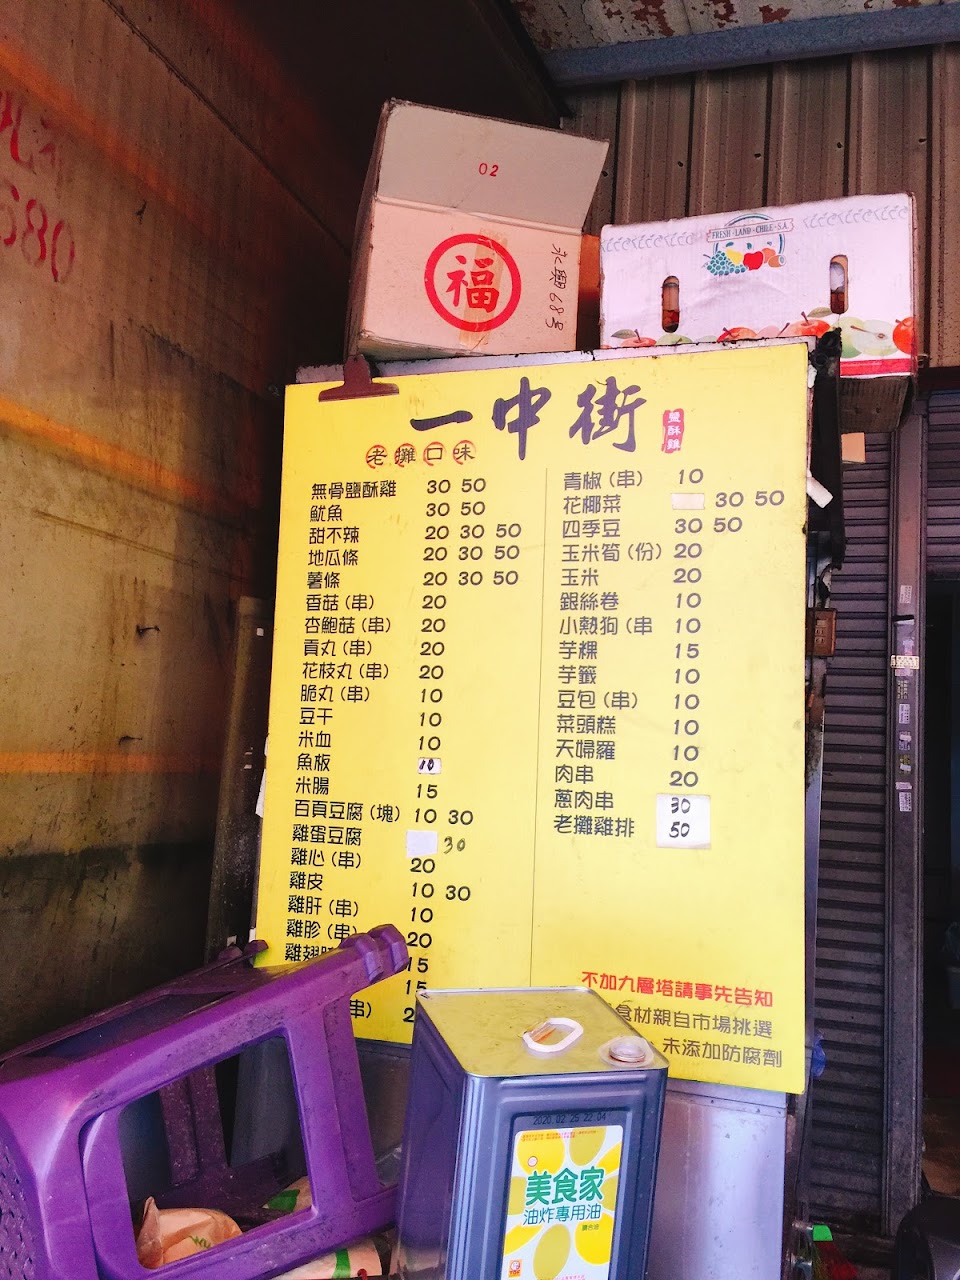 680
02
福
永興68号
FRESH·LAND·CHILE·S.A.
一中街
鹽酥雞
老攤口味
無骨鹽酥雞 30 50
魷魚 30 50
甜不辣 20 30 50
地瓜條 20 30 50
薯條 20 30 50
香菇(串) 20
杏鮑菇(串) 20
貢丸(串) 20
花枝丸(串) 20
脆丸(串) 10
豆干 10
米血 10
魚板 10
米腸 15
百頁豆腐(塊) 10 30
雞蛋豆腐 30
雞心(串) 20
雞皮 10 30
雞肝(串) 10
雞胗(串) 20
雞翅 15
15
串) 2
青椒(串) 10
花椰菜 30 50
四季豆 30 50
玉米筍(份) 20
玉米 20
銀絲卷 10
小熱狗(串 10
芋粿 15
芋籤 10
豆包(串) 10
菜頭粿 10
天婦羅 10
肉串 20
蔥肉串 30
老攤雞排 50
不加九層塔請事先告知
食材親自市場挑選
未添加防腐劑
2020.02.25 22 04
美食家
油炸專用油
調合油